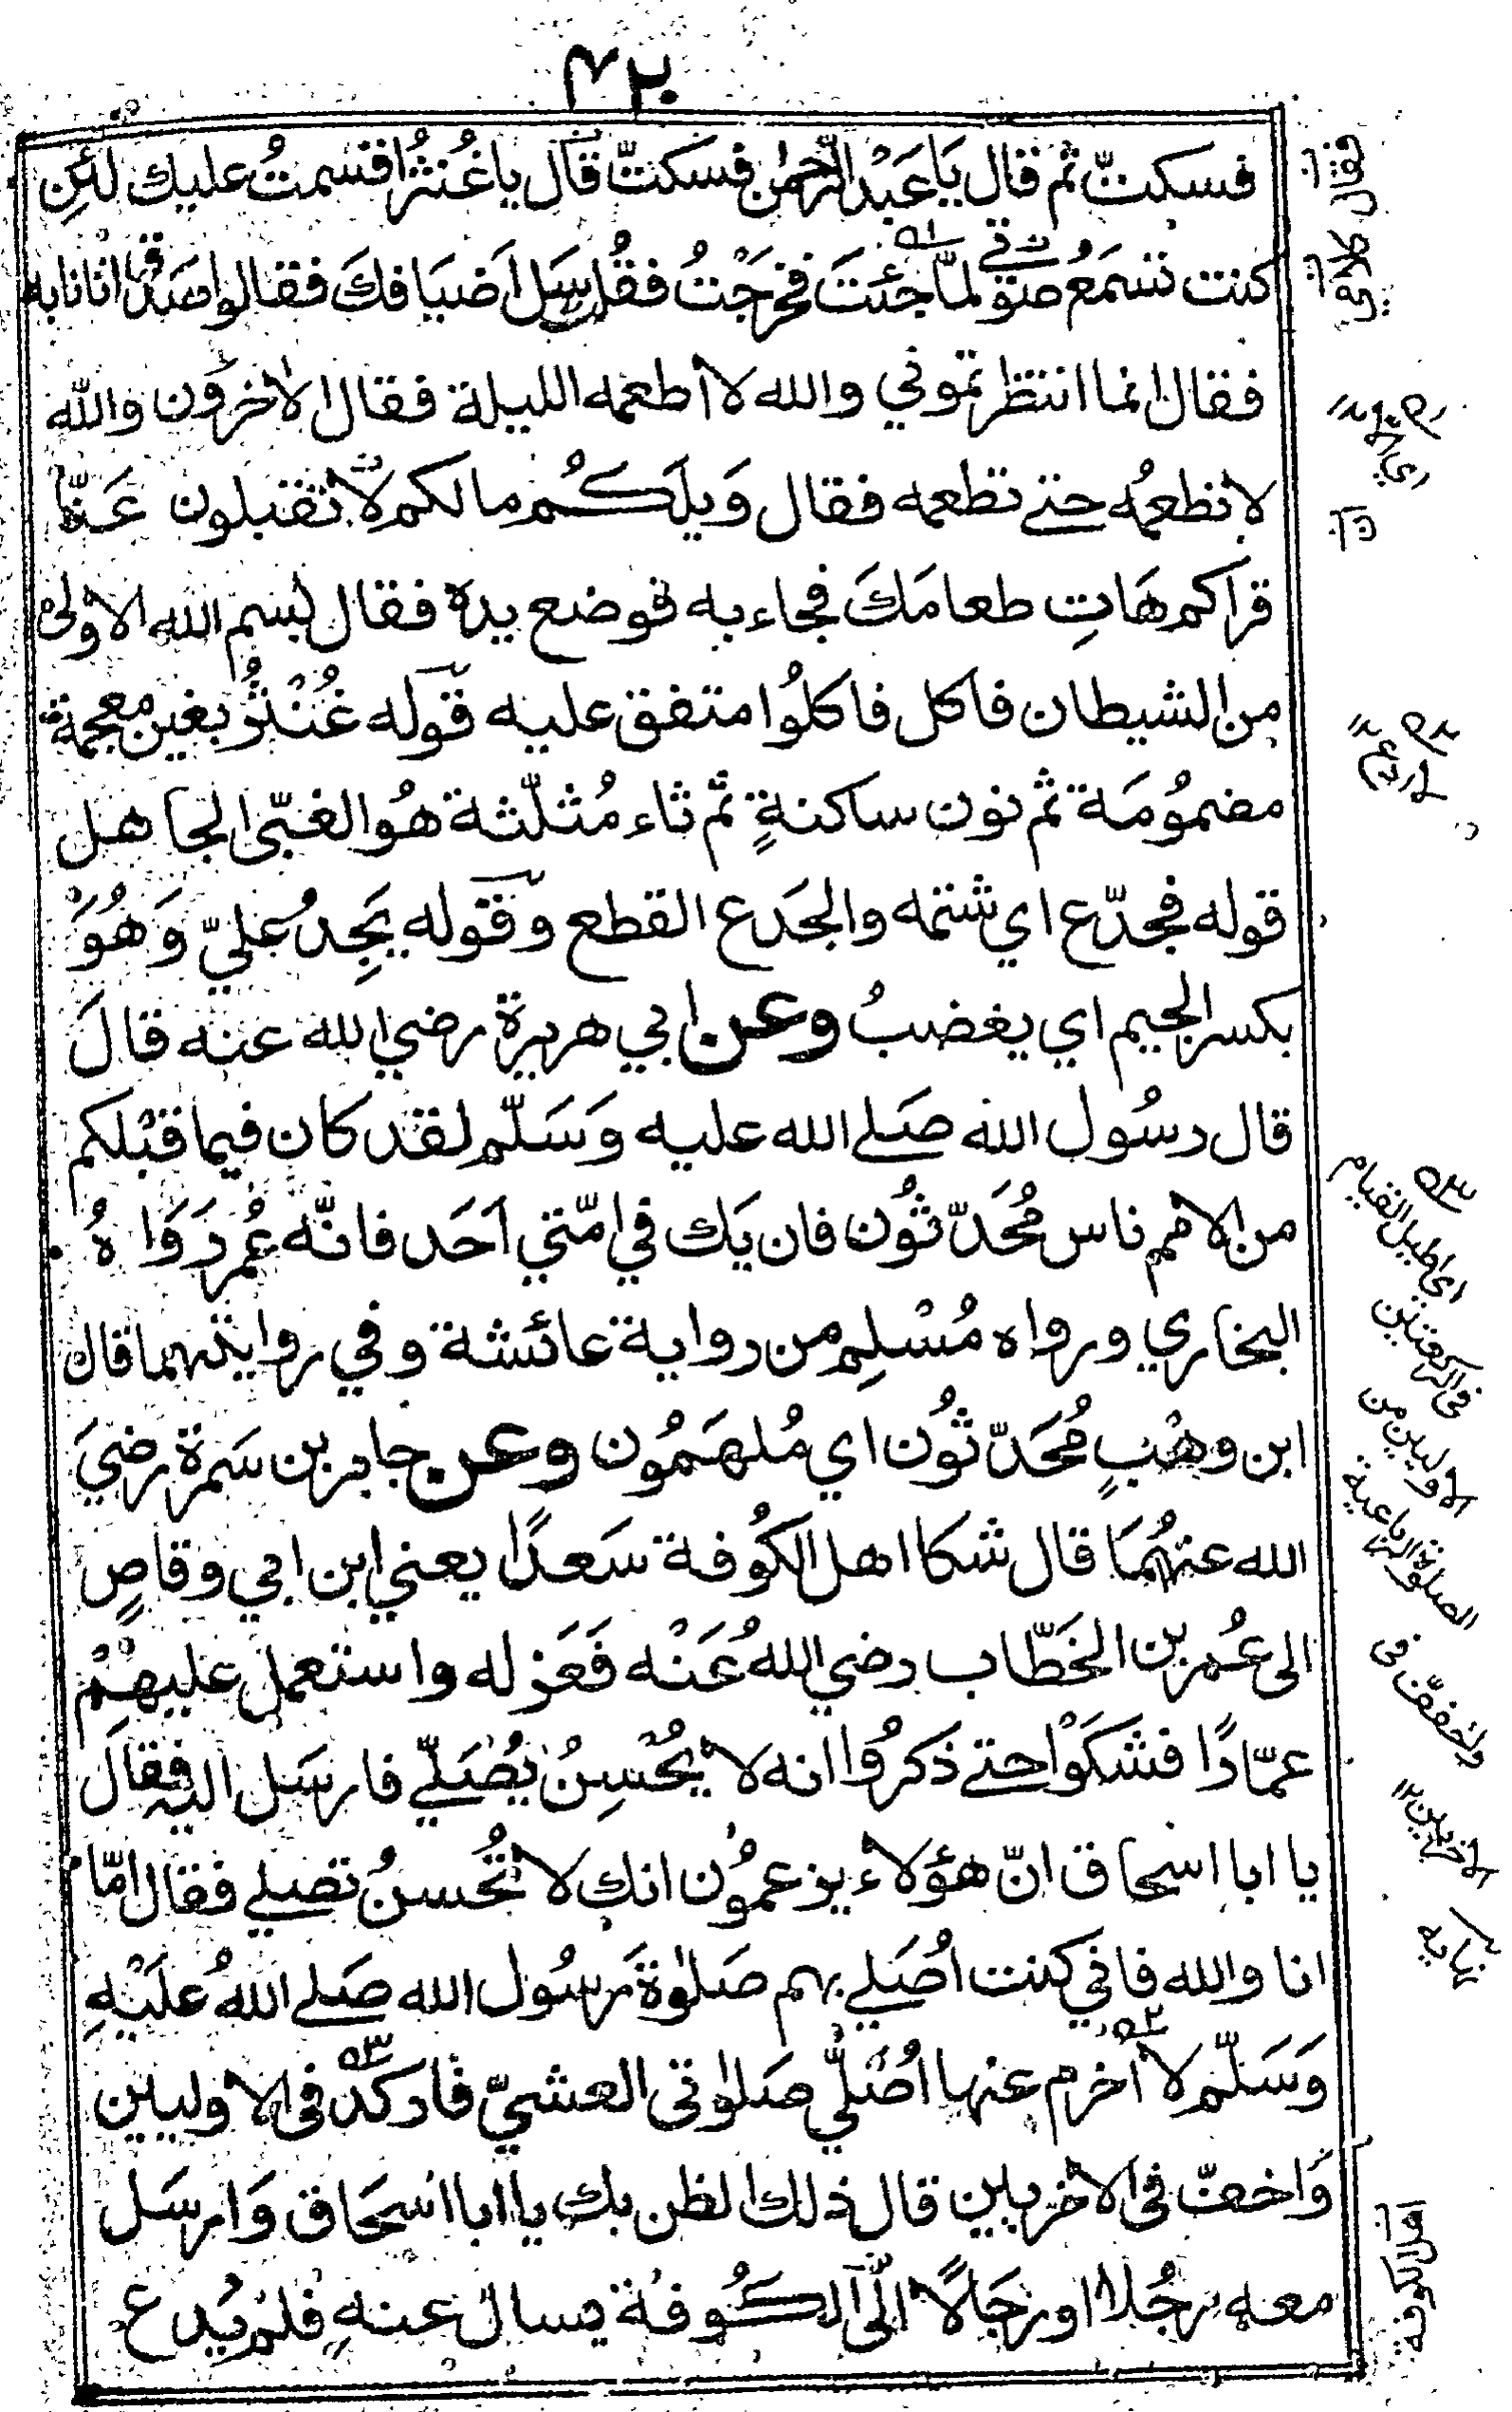 ۴۲۰
فسكتّ ثم قال يَا عَبْد الرّحمٰن فسَكتّ قال يا غُنثرُ اقسَمتُ عليك لئِن
كنت تسمَعُ صوتي لمّا جئتَ فخرَجْتُ فقُلْ سَل اَضيَافكَ فقالوا صَدَق اتانا به
فقال انما انتظرتموني والله لا اطعمه الليلة فقال الاٰخرُون والله
لا نطعمُه حتے تطعمه فقال وَيلَكُم مالكم لا تقبلون عَنّا
قراكم هَاتِ طعامَكَ فجاء به فوضع يده فقال بسم الله الاولیٰ
من الشيطان فاكل فاكلُوا متفق عليه قوله غُنْثَرُ بغين معجمة
مضمُومَة ثم نون ساكنةٍ ثم ثاء مُثلّثة هُو الغبّی الجاهل
قوله فجدّع اي شتمه والجَدع القطع وقوله يَجِدُ عليّ وَهُوَ
بكسر الجيم اي يغضبُ وعن ابي هريرة رضي الله عنه قالَ
قال رسُول الله صَلے الله عليه وَسَلّم لقد كان فيما قبْلكم
من الامم ناس مُحَدّثُون فان يَك في امّتي اَحَد فانّه عُمر رَوَاهُ
البخاري ورواه مُسْلِم من رواية عائشة وفي روايتهما قال
ابن وهْبٍ مُحَدّثُون اي مُلهَمُون وعن جابر بن سَمرة رضيَ
الله عنهُمَا قال شكا اهل الكُوفة سَعدًا يعني ابن ابي وقاصٍ
الى عُمر بن الخَطّاب رضي اللهُ عَنْه فَعَزله واستعمل عليهمْ
عمّارًا فشكَوْا حتے ذكرُوا انه لا يُحْسِنُ يُصَلّے فارسَل اليه فقالَ
يا ابا اسحاق انّ هؤلاء يزعمُون انك لا تُحسنُ تصلے فقال امّا
انا والله فاني كنت اُصَلے بهم صَلوٰة رسُول الله صَلے اللهُ عليْهِ
وَسَلّم لا اخرم عنها اُصَلّي صَلوٰتی العشيّ فاركد فی الاوليين
وَاخفّ فی الاخريين قال ذلك الظن بك يا ابا اسحَاق وَارسَل
معه رجُلا او رجَالًا الی الكُوفة يسال عنه فلم يَدع
فقال
۵۳
ای اطيل القيام
فی الركعتين
الاوليين من
الصلوة الرباعية
واخفّف فی
الاخريين ۱۲
نهايه
اهل الكوفة